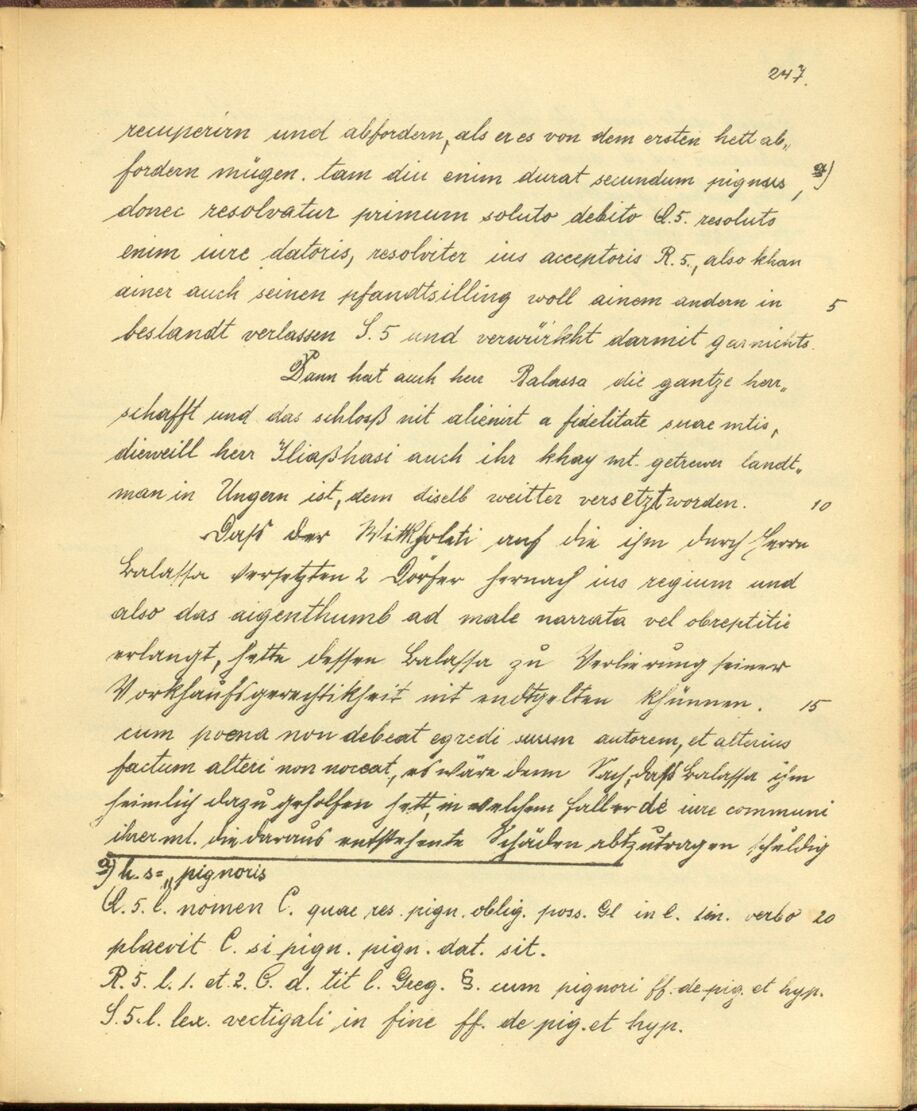 247.
recuperirn und abfordern, als er es von dem ersten hett ab„
fordern mügen. tam diu enim durat secundum pignus, a)
donec resolvatur primum soluto debito Q.5. resoluto
enim iure datoris, resolviter ius acceptoris R. 5., also khan
ainer auch seinen pfandtsilling woll ainem andern in 5
beslandt verlassen S. 5 und verwürkht darmit garnichts.
Dann hat auch herr Balassa die gantze herr„
schafft und das schloß nit alienirt a fidelitate suae mtis,
dieweill herr Iliaßhasi auch ihr khay mt. getrewer landt„
man in Ungern ist, dem diselb weitter versetzt worden. 10
Dass der Mitkholati auf die ihm durch Herrn
Balassa versetzten 2 Dörfer hernach ius regium und
also das aigenthumb ad male narrata vel obreptitie
erlangt, hette dessen Balassa zu Verlierung seiner
Vorkhaufsgerechtikheit nit endtgelten khünnen. 15
cum poena non debeat egredi suum autorem, et alterius
factum alteri non noceat, es wäre denn Sach, daß Balassa ihm
heimlich dazu geholfen hett, in welchem fall er de iure communi
ihrer mt. die daraus entstehente Schäden abtzutragen schuldig
a) h. s= „pignoris
Q. 5. l. nomen C. quae res. pign. oblig. poss. Gl in l. fin. verbo 20
placvit C. si pign. pign. dat. sit.
R. 5. l. 1. et. 2. C. d. tit l. Greg. §. cum pignori ff. de pig. et hyp.
S. 5. l. lex. vectigali in fine ff. de pig. et hyp.